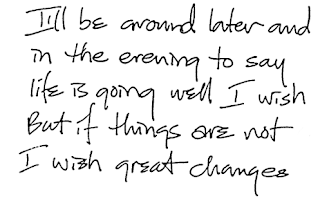 I'll be around later and
in the evening to say
life is going well I wish
But if things are not
I wish great changes